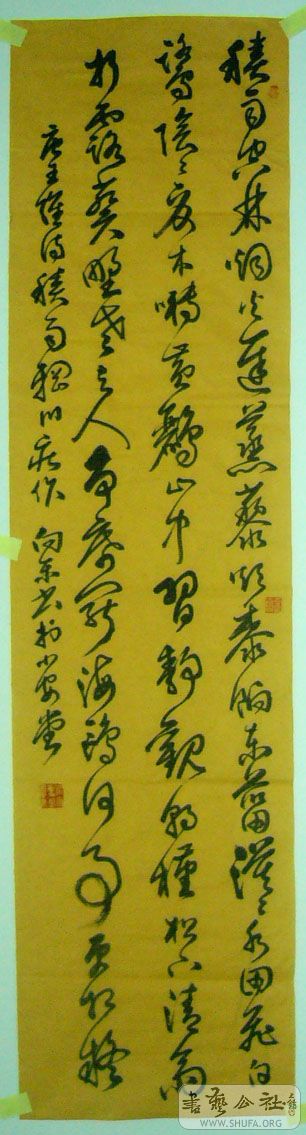 積雨空林烟火遲蒸藜炊黍餉東菑漠〻水田飛白
鷺陰〻夏木囀黃鸝山中習靜觀朝槿松下清齋
折露葵野老與人爭席罷海鷗何事更相疑
唐王維詩積雨輞川莊作 向東書於小堂
書藝公社
WWW.SHUFA.ORG